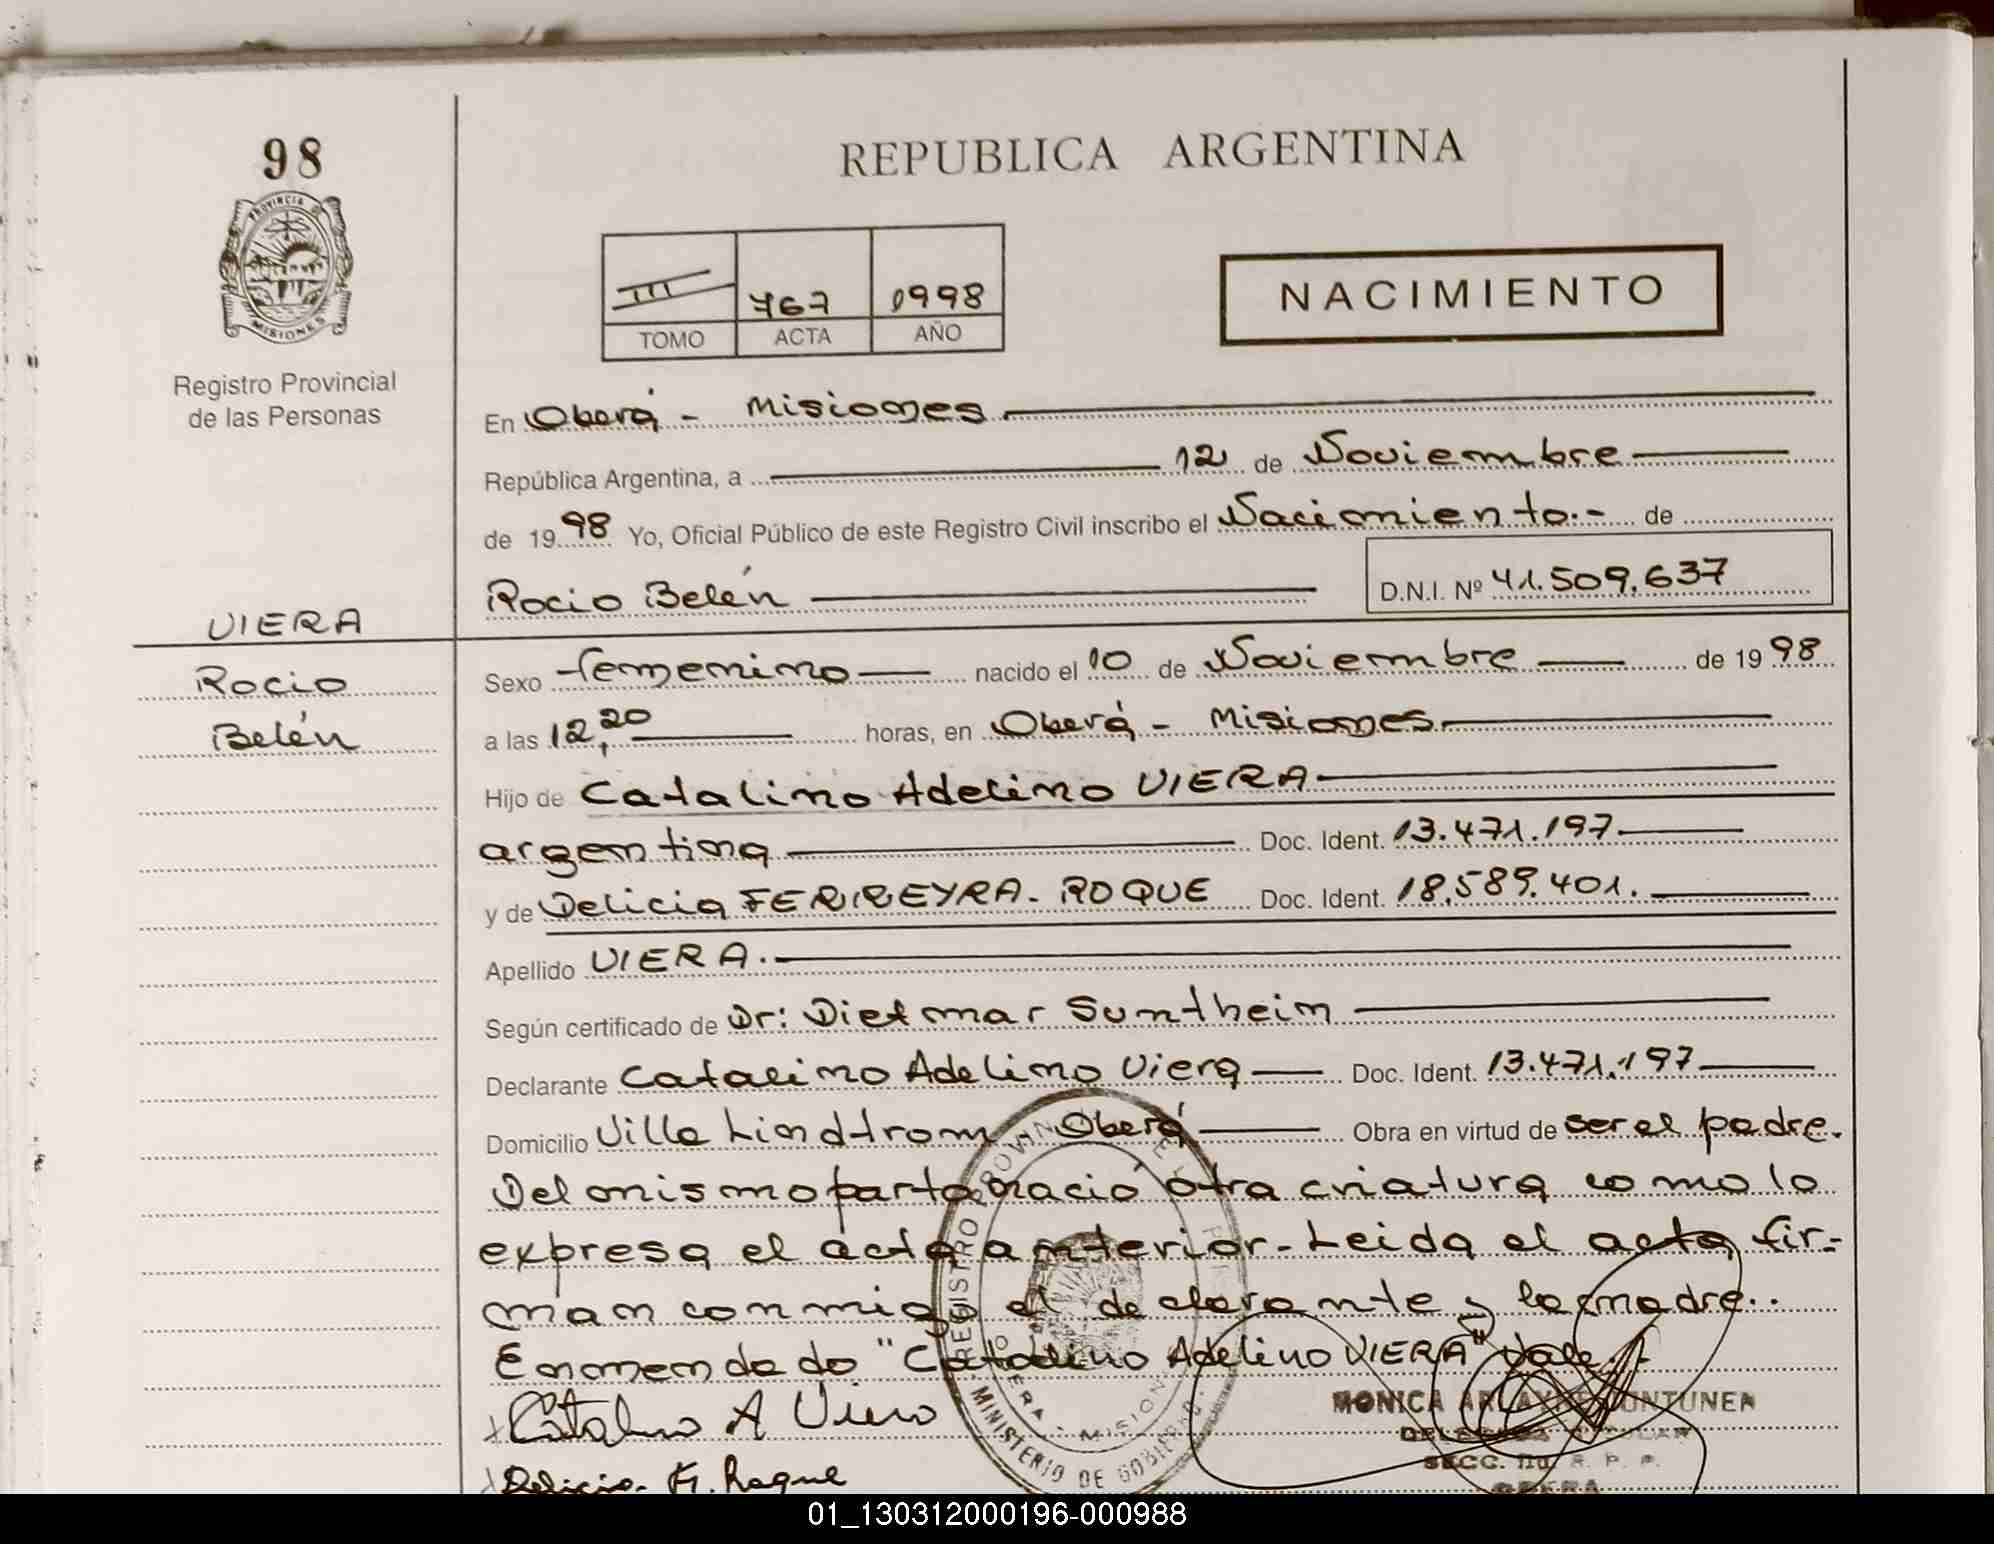 98
PROVINCIA
MISIONES
Registro Provincial
de las Personas
VIERA
Rocio
Belén
REPUBLICA ARGENTINA
III 767 1998
TOMO ACTA AÑO
NACIMIENTO
En Oberá - Misiones
República Argentina, a 12 de Noviembre
de 1998 Yo, Oficial Público de este Registro Civil inscribo el Nacimiento.- de
Rocio Belén D.N.I. Nº 41.509.637
Sexo femenino nacido el 10 de Noviembre de 1998
a las 12,20 horas, en Oberá - Misiones
Hijo de Catalino Adelino VIERA
argentina Doc. Ident. 13.471.197
y de Delicia FERREYRA - ROQUE Doc. Ident. 18.589.401.
Apellido VIERA.
Según certificado de Dr: Dietmar Suntheim
Declarante Catalino Adelino Viera Doc. Ident. 13.471.197
Domicilio Villa Lindtrom Oberá Obra en virtud de ser el padre.
Del mismo parto nació otra criatura como lo
expresa el acta anterior - Leida el acta fir-
man conmigo el declarante y la madre..
Enmendado "Catalino Adelino VIERA" Vale.
Catalino A Viera
Delicia F. Roque
REGISTRO PROVIN
MINISTERIO DE GOBIERNO
MONICA
SECC. R. P. P.
OBERA
01_130312000196-000988